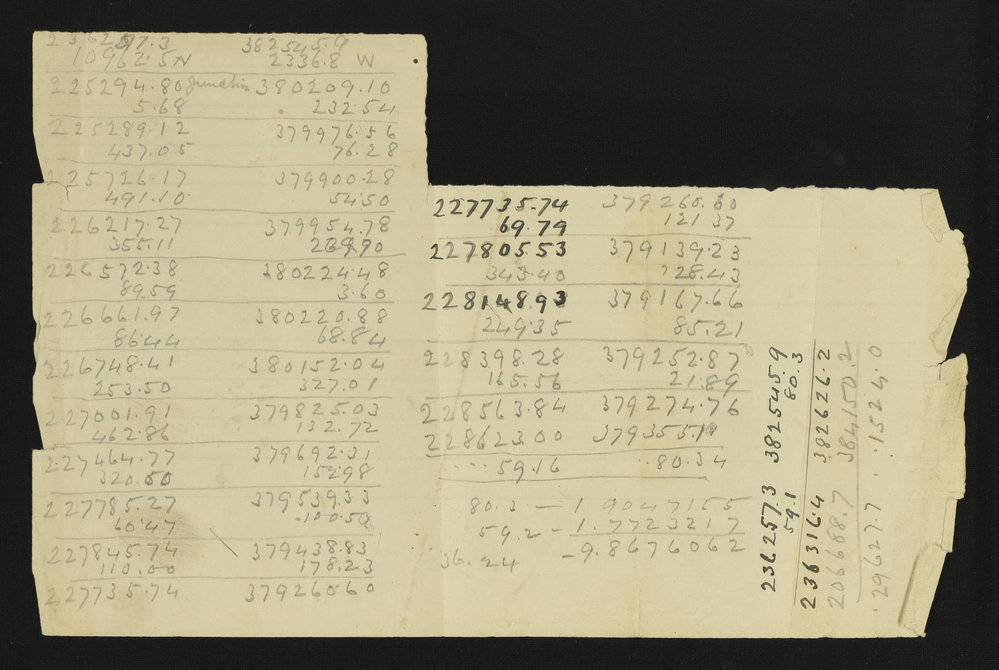 236257.3 382545.9
10962.5 W 2336.8 W
225294.80 Junction 380209.10
5.68 232.54
225289.12 379976.56
437.05 76.28
225726.17 379900.28
491.10 54.50
226217.27 379954.78
355.11
226572.38 380224.48
89.59 3.60
226661.97 380220.88
86.44 68.84
226748.41 380152.04
253.50 327.01
227001.91 379825.03
462.86 132.72
227464.77 379692.31
320.50 152.98
227785.27 379539.33
60.47 -100.50
227845.74 379438.83
110.00 178.23
227735.74 379260.60
227735.74 379260.60
69.79 121.37
227805.53 379139.23
343.40 28.43
228148.93 379167.66
249.35 85.21
228398.28 379252.87
165.56 21.89
228563.84 379274.76
228623.00 379355.1
59.16 80.34
80.3 — 1.9047155
59.2 - 1.7723217
36.24 -9.8676062
236257.3 382545.9
59.1 80.3
236316.4 382626.2
206688.7 384150.2
29627.7 1524.0